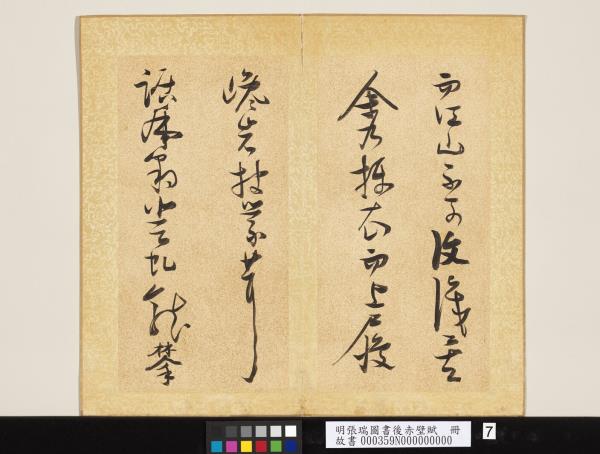 而江山不可復識矣
余乃攝衣而上履
巉岩披蒙茸
踞虎豹登虬龍攀
明張瑞圖書後赤壁賦　冊
故書 000359N000000000
7